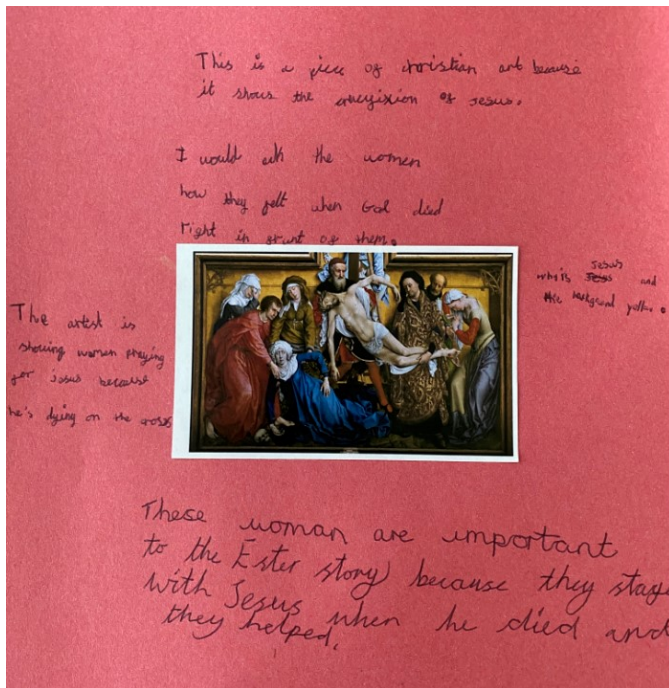 This is a piece of christian art because
it shows the crucyixion of Jesus.
I would ask the women
how they felt when God died
right in frunt of them.
why is Jesus and
the background yellow.
The artist is
showing women praying
for Jesus because
he's dying on the cross
These woman are important
to the Ester story because they staye
with Jesus when he died and
they helped.